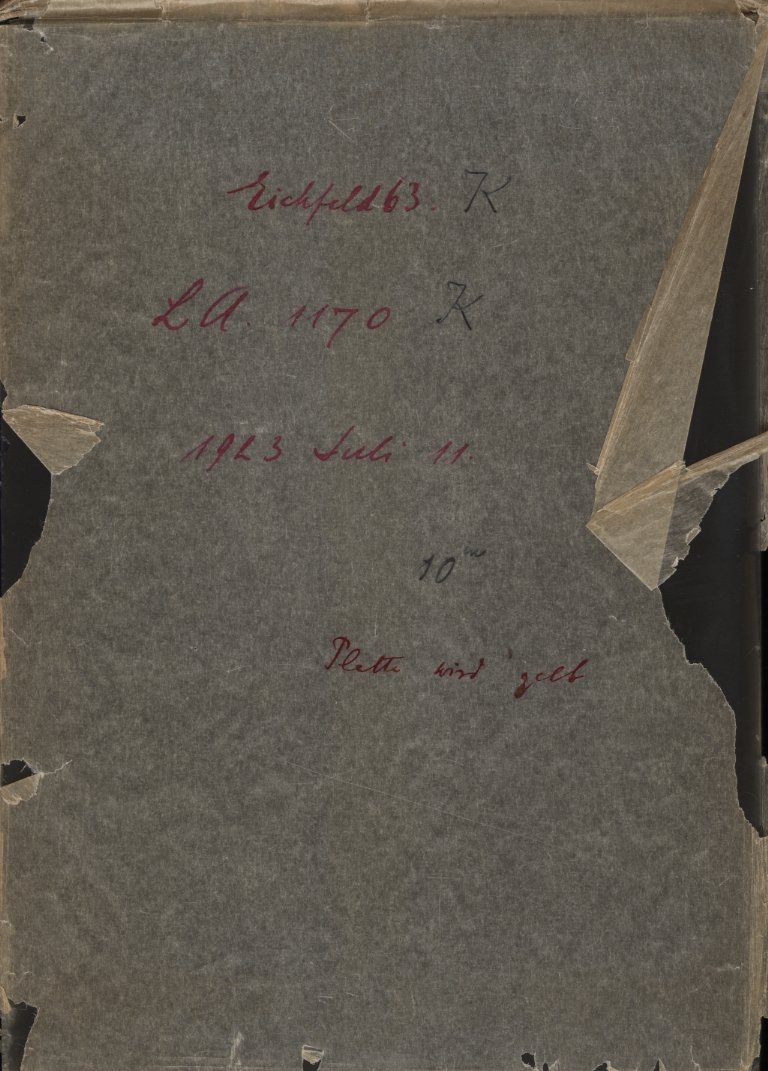 Eichfeld 63. K
LA. 1170 K
1923 Juli 11.
10ᵐ
Platte wird gelb